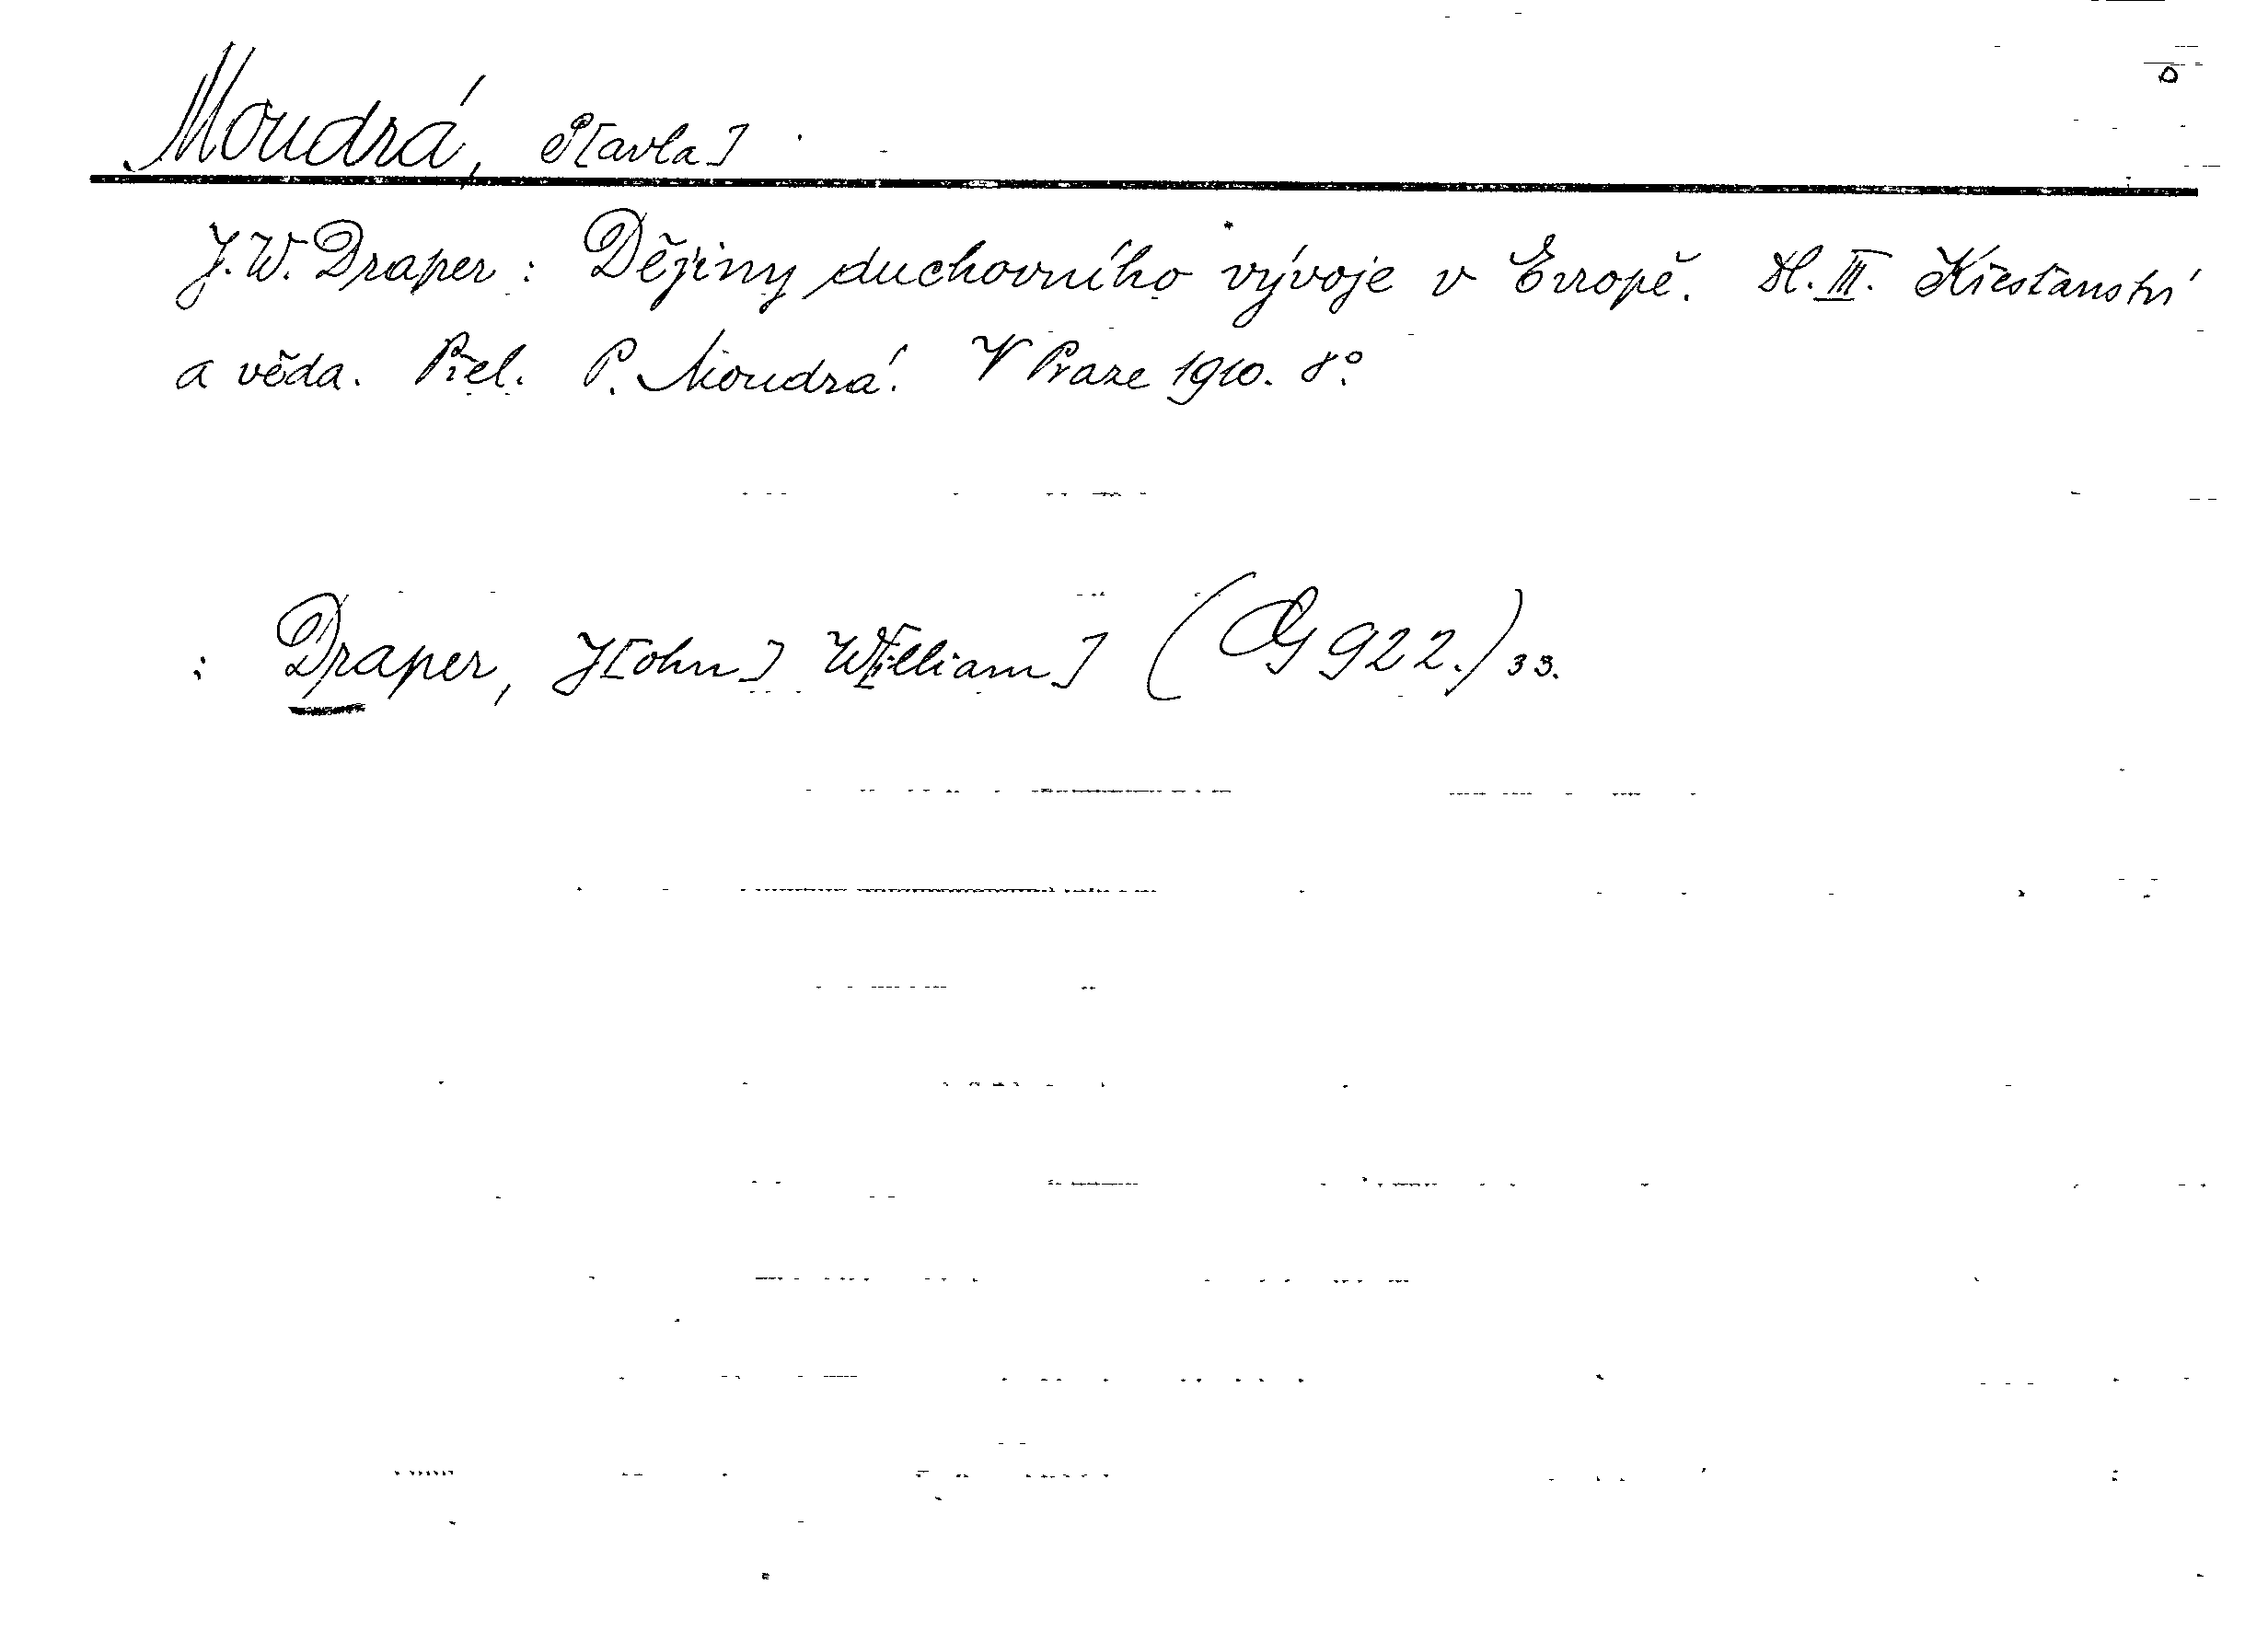 Moudrá, P[avla]
J. W. Draper : Dějiny duchovního vývoje v Evropě. Dl. III. Křesťanství
a věda. Přel. P. Moudrá. V Praze 1910. 8°.
: Draper, J[ohn] W[illiam] ( G 922.) 33.